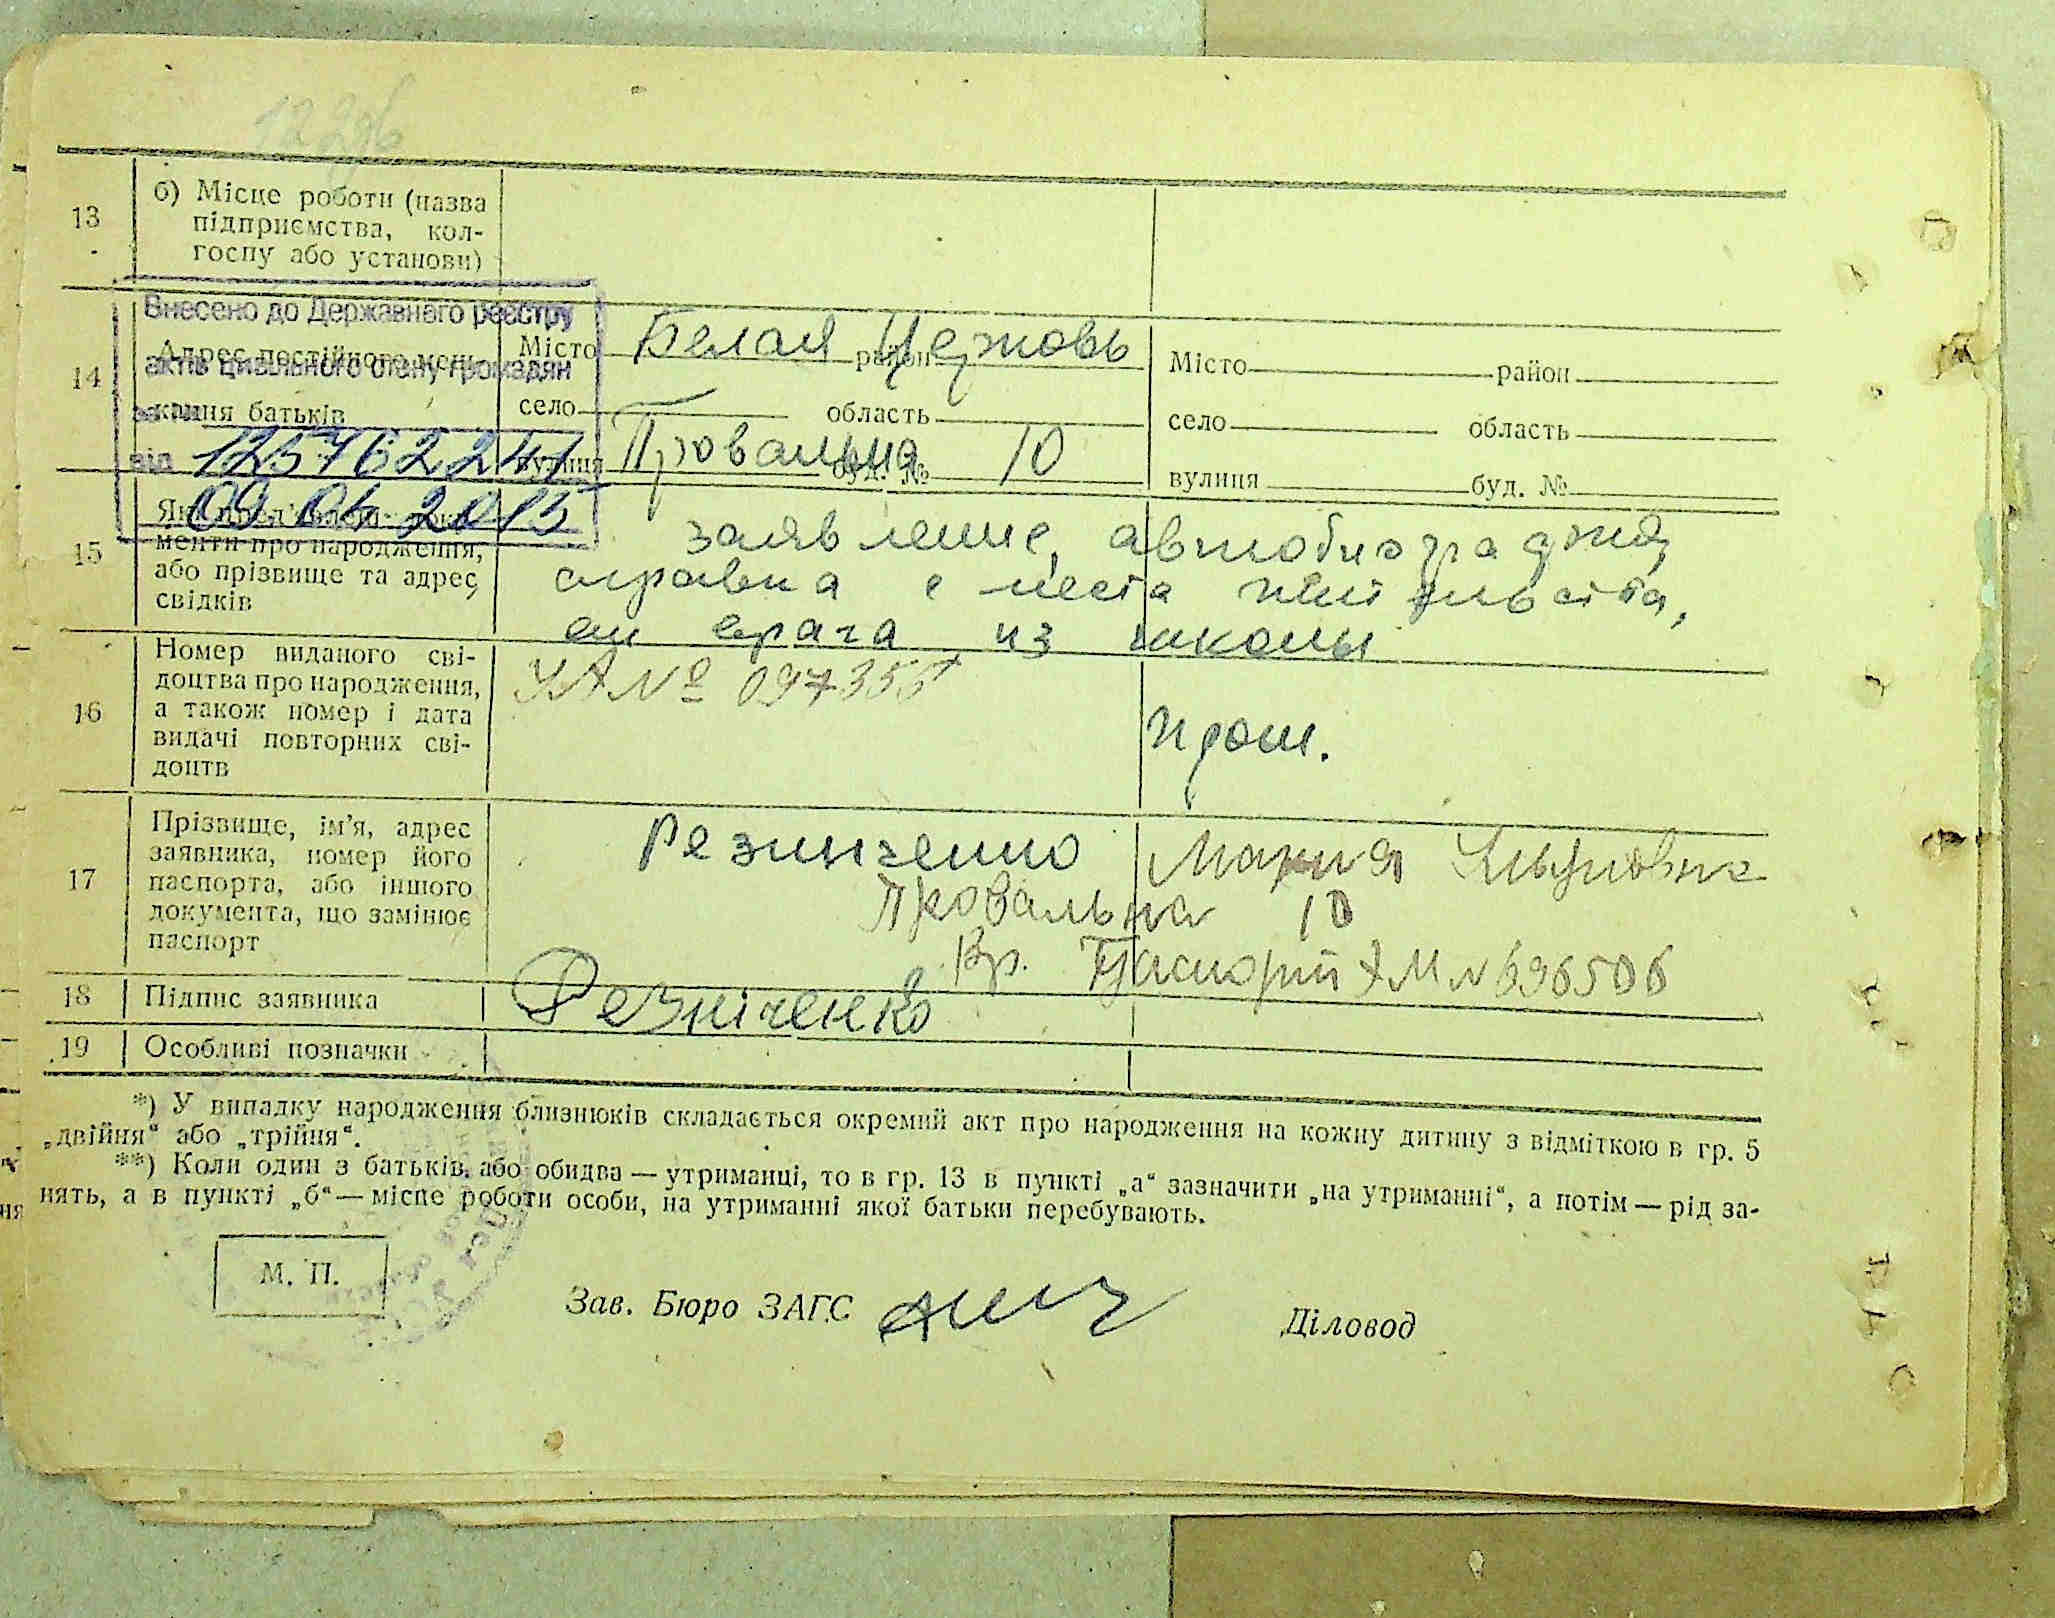 13
б) Місце роботи (назва
підприємства, кол-
госпу або установи)
Внесено до Державного реєстру
актів цивільного стану громадян
від 09 04 2015
14
Адрес постійного меш-
кання батьків
Місто Белая Церковь район
село область
вулиця Провальна буд. № 10
Місто район
село область
вулиця буд. №
15
менти про народження,
або прізвище та адрес
свідків
заявление, автобиография,
справка с места жительства,
из школы
16
Номер виданого сві-
доцтва про народження,
а також номер і дата
видачі повторних сві-
доцтв
УА № 097355
17
Прізвище, ім'я, адрес
заявника, номер його
паспорта, або іншого
документа, що замінює
паспорт
Резниченко Мария
Провальна 10
Вр. Паспорт № 696506
18
Підпис заявника
Резніченко
19
Особливі позначки
*) У випадку народження близнюків складається окремий акт про народження на кожну дитину з відміткою в гр. 5
„двійня“ або „трійня“.
**) Коли один з батьків, або обидва — утриманці, то в гр. 13 в пункті „а“ зазначити „на утриманні“, а потім — рід за-
нять, а в пункті „б“ — місце роботи особи, на утриманні якої батьки перебувають.
М. П.
Зав. Бюро ЗАГС
Діловод